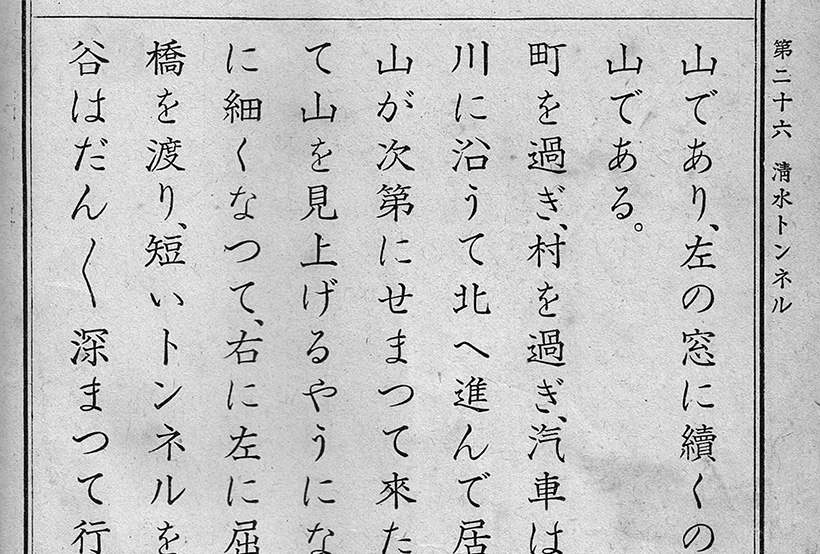 第二十六 淸水トンネル
山であり、左の窓に續くの
山である。
町を過ぎ、村を過ぎ、汽車は
川に沿うて北へ進んで居
山が次第にせまつて來た
て山を見上げるやうにな
に細くなつて、右に左に屈
橋を渡り、短いトンネルを
谷はだん〱深まつて行